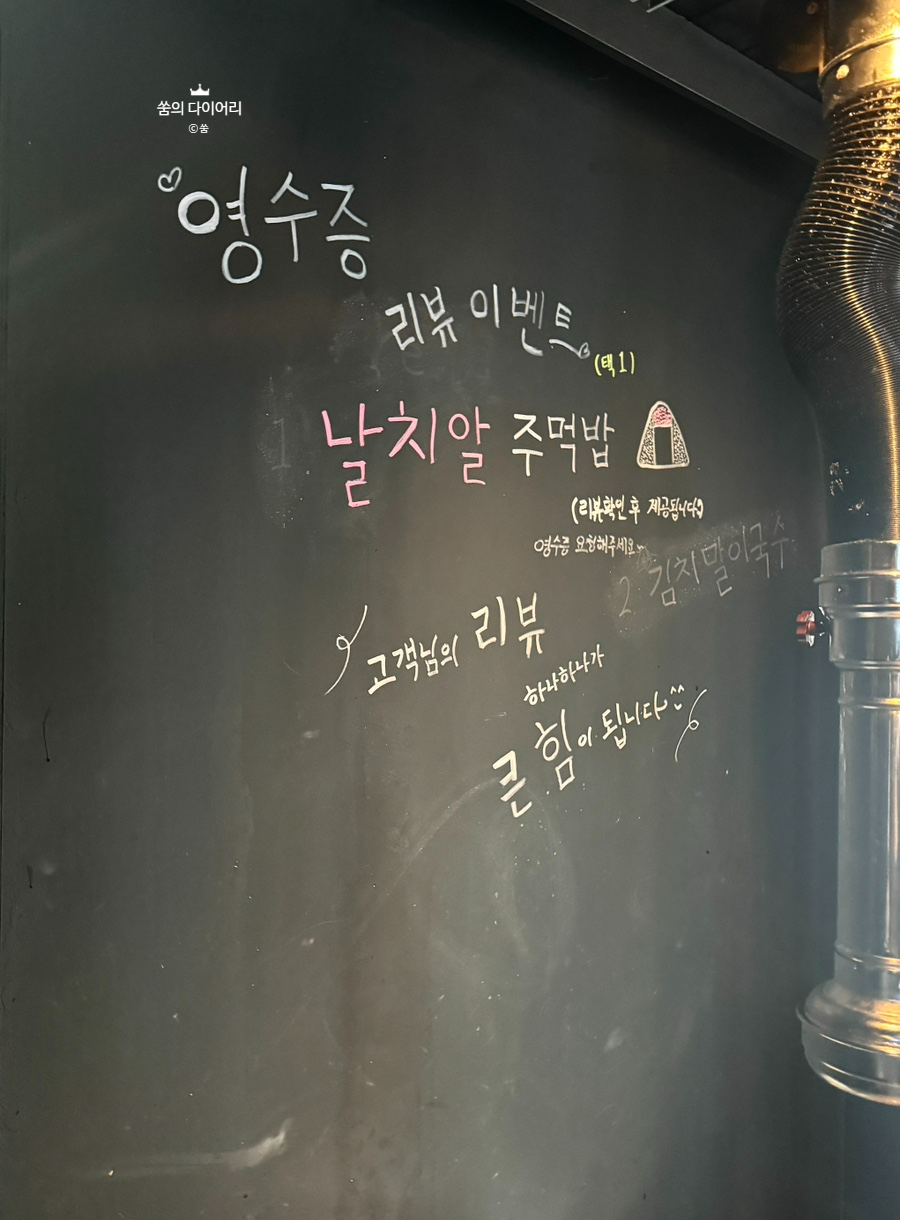 쑴의 다이어리
©쑴
영수증
리뷰 이벤트
(택1)
1 날치알 주먹밥
(리뷰확인 후 제공됩니다)
영수증 요청해주세요
2 김치말이국수
고객님의 리뷰
하나하나가
큰 힘이 됩니다^^